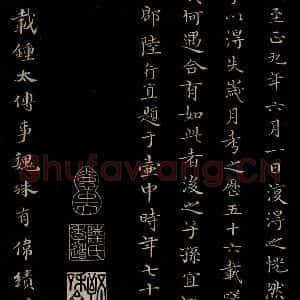 至正九年六月一日復得之恍然
事以得失歲月考之歷五十六載
何遇合有如此者後之子孫宜
郡陸行直題于壺中時年七十
載鍾太傅事魏殊有偉績
Shufawang.CN